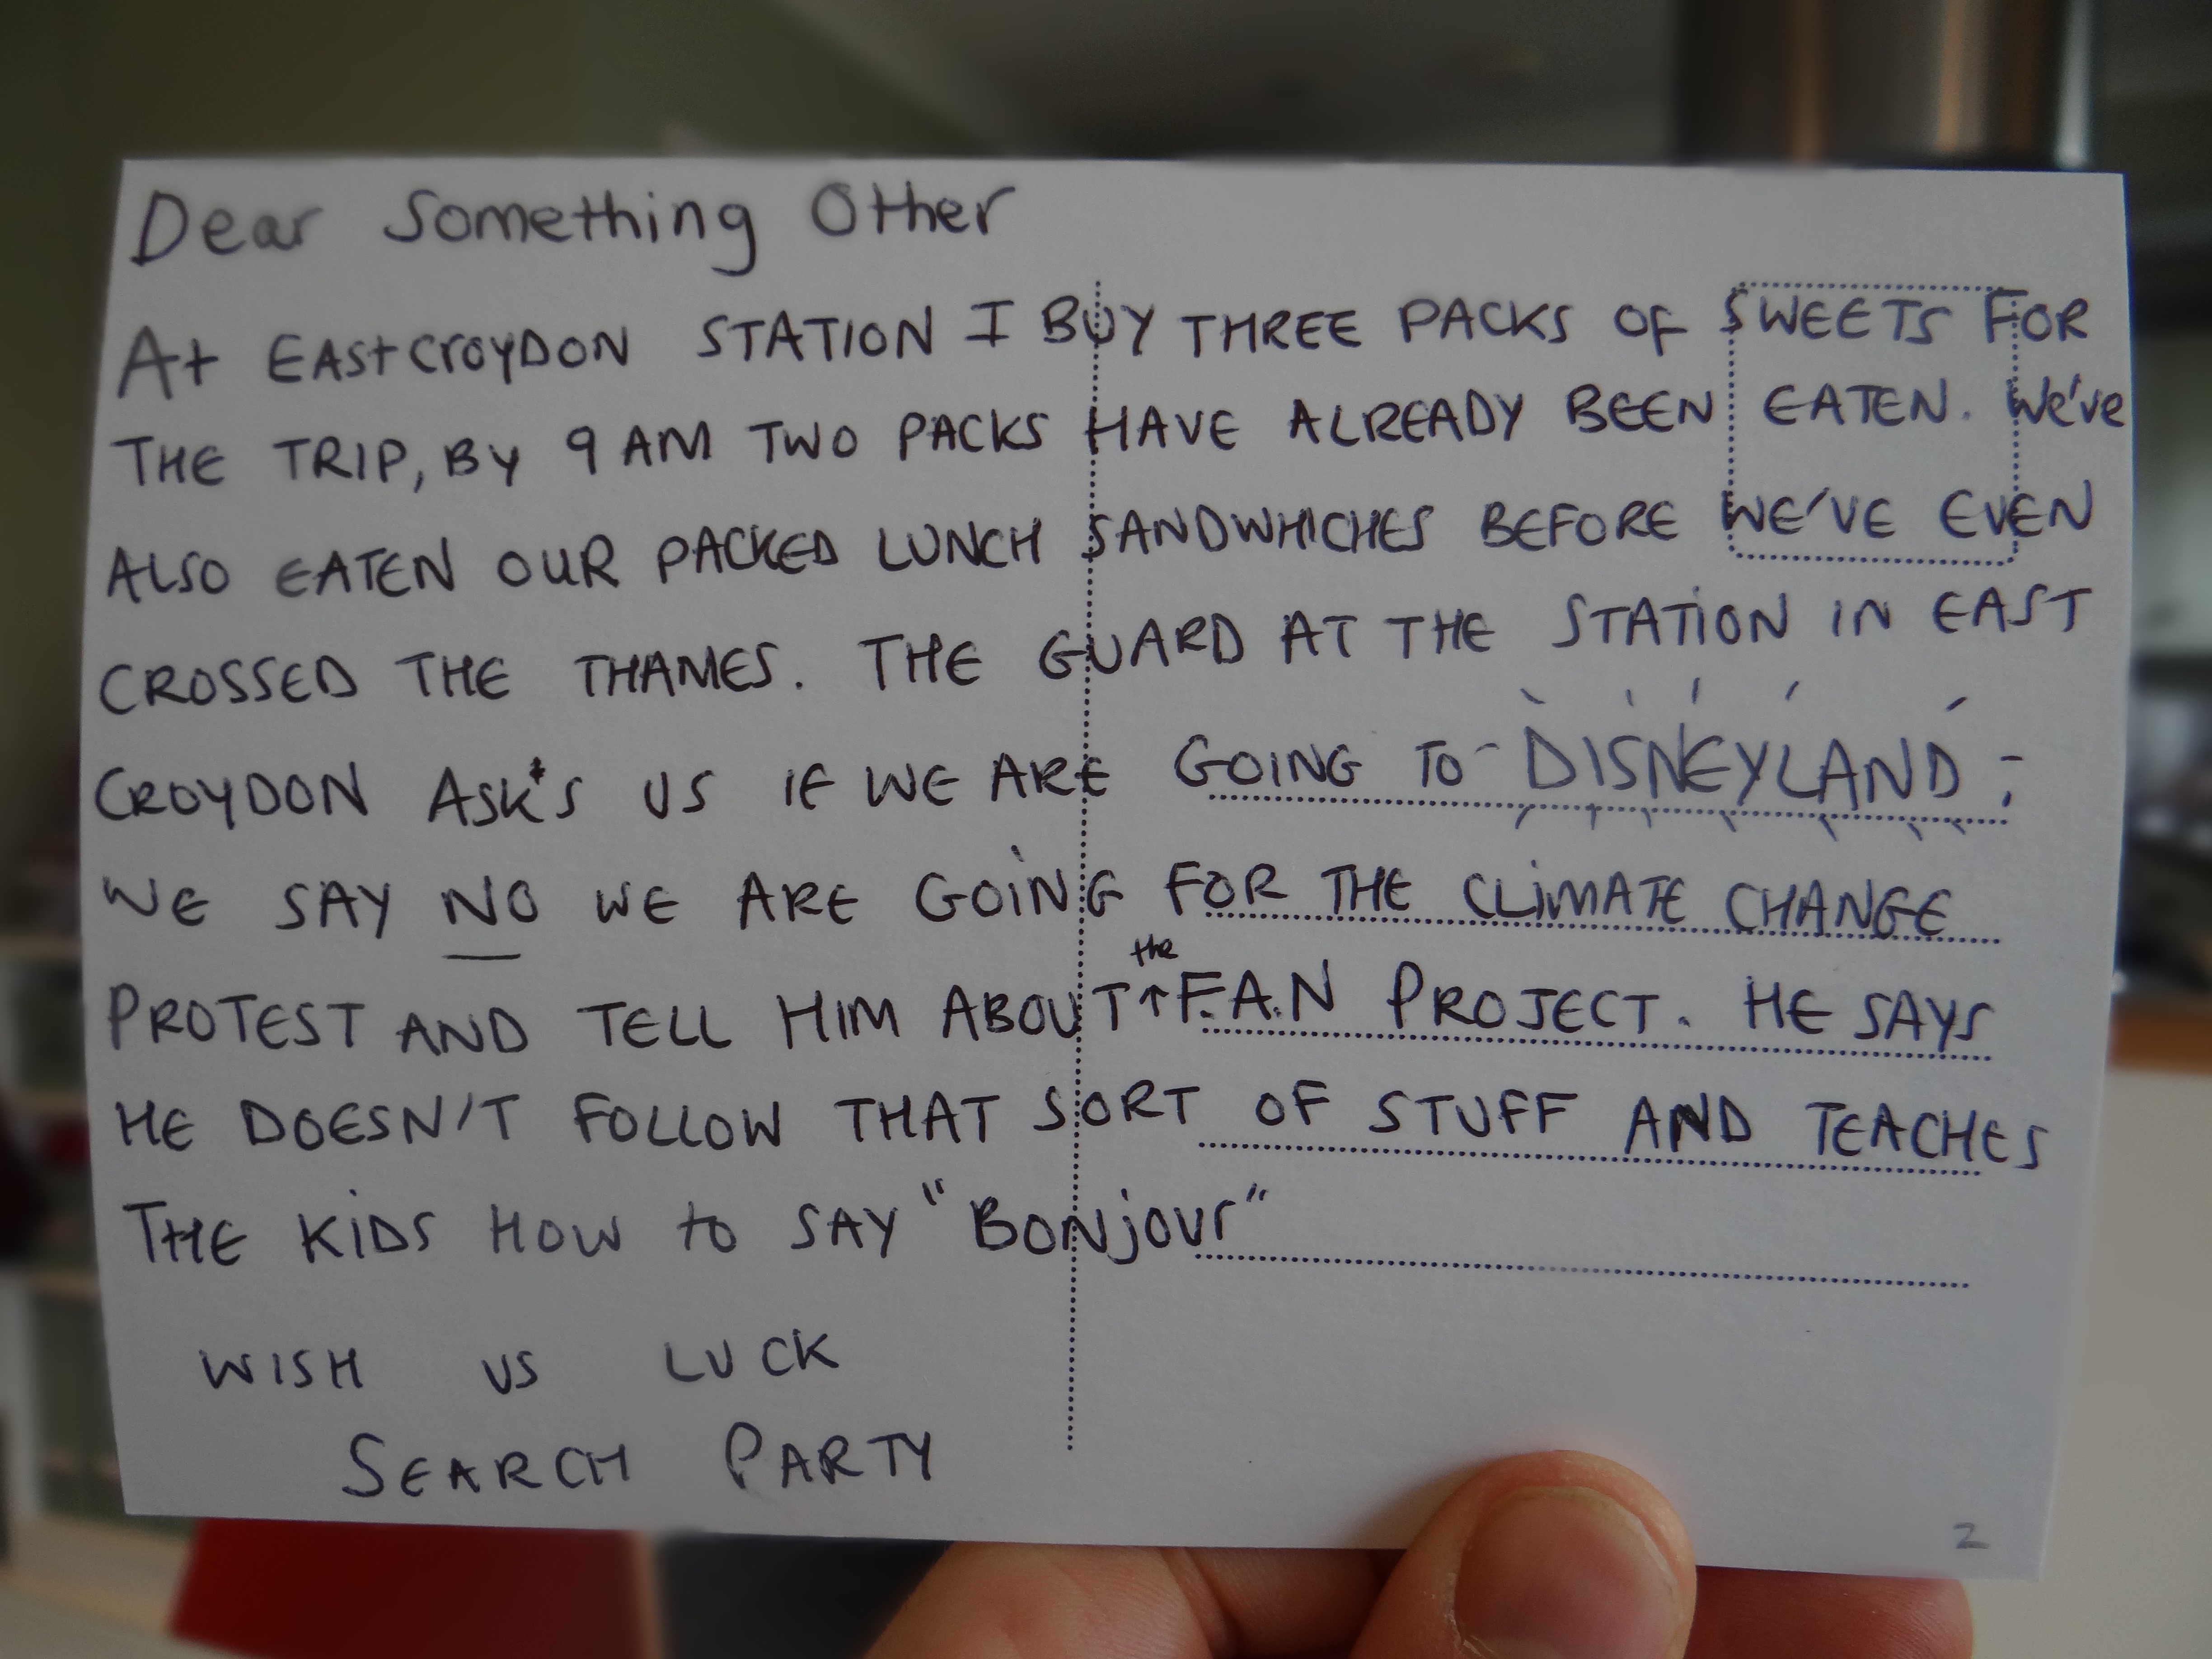 Dear Something Other
At EAST CROYDON STATION I BUY THREE PACKS OF SWEETS FOR
THE TRIP, BY 9 AM TWO PACKS HAVE ALREADY BEEN EATEN. We've
ALSO EATEN OUR PACKED LUNCH SANDWHICHES BEFORE WE'VE EVEN
CROSSED THE THAMES. THE GUARD AT THE STATION IN EAST
CROYDON ASK'S US IF WE ARE GOING TO DISNEYLAND;
WE SAY NO WE ARE GOING FOR THE CLIMATE CHANGE
PROTEST AND TELL HIM ABOUT the F.A.N PROJECT. HE SAYS
HE DOESN'T FOLLOW THAT SORT OF STUFF AND TEACHES
THE KIDS HOW to SAY "BONjour"
WISH US LUCK
SEARCH PARTY
2